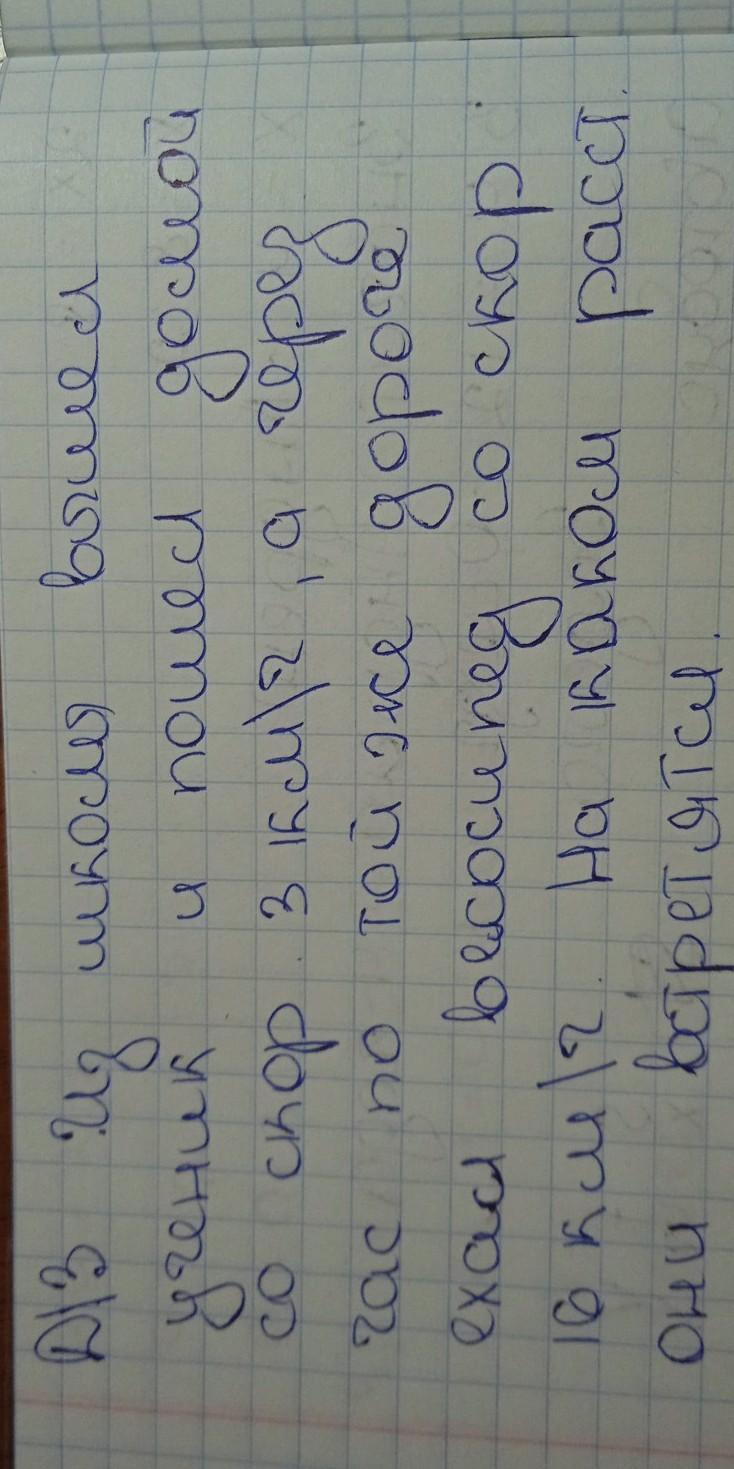 Д\З Из школы вышел
ученик и пошел домой
со скор 3 км\ч, а через
час по той же дороге
ехал велосипед со скор
16 км\ч. На каком расст.
они встретятся.